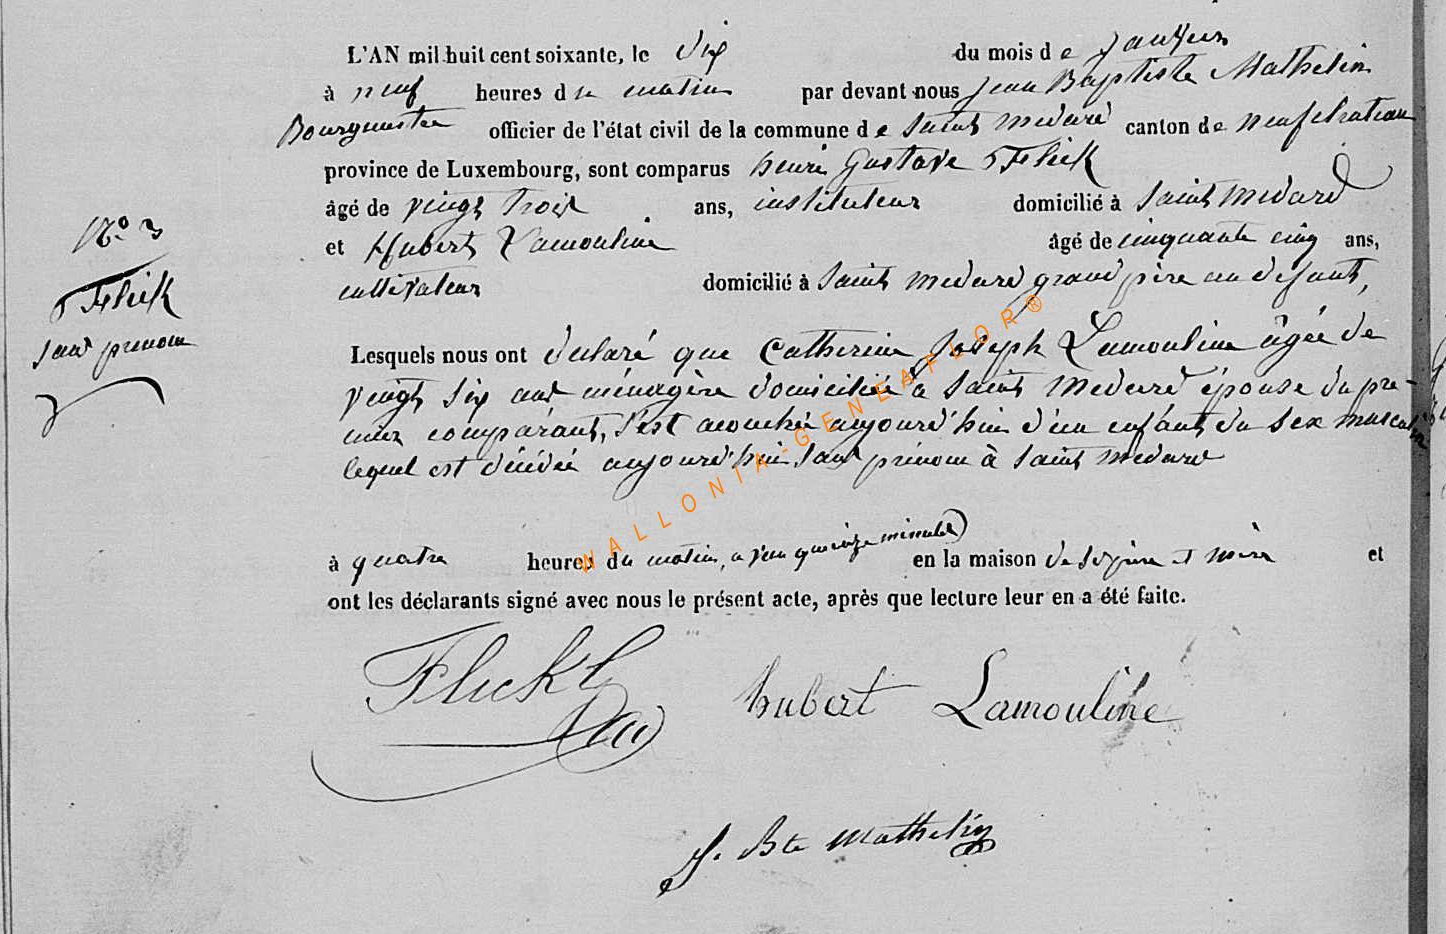 L'AN mil huit cent soixante, le dix du mois de janvier
à neuf heures du matin par devant nous Jean Baptiste Mathelin
Bourgmestre officier de l'état civil de la commune de Saint Medard canton de neufchateau
province de Luxembourg, sont comparus henri Gustave Flick
âgé de vingt trois ans, instituteur domicilié à Saint Medard
et Hubert Lamouline âgé de cinquante cinq ans,
cultivateur domicilié à Saint Medard grand père au defunt,
N° 3
Flick
sans prenom
Lesquels nous ont déclaré que Catherine Joseph Lamouline âgée de
vingt six ans ménagère domiciliée à Saint Medard épouse du pre-
mier comparant, s'est acouchée aujourd'hui d'un enfant du sex masculin
lequel est décédé aujourd'hui sans prénom à Saint Medard
à quatre heures du matin, a vecu quinze minutes en la maison de ses père et mère et
ont les déclarants signé avec nous le présent acte, après que lecture leur en a été faite.
Flick
hubert Lamouline
J. Bte Mathelin
WALLONIA-GENEAFLOR®